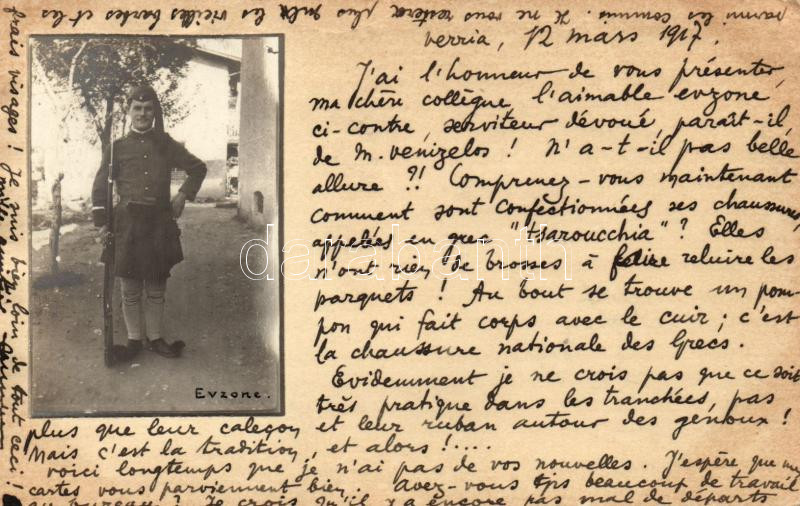 verria, 12 mars 1917.
J'ai l'honneur de vous présenter,
ma chère collègue, l'aimable evzone
ci-contre, serviteur dévoué, paraît-il,
de M. Venizelos ! N'a-t-il pas belle
allure ?! Comprenez-vous maintenant
comment sont confectionnées ses chaussures,
appelées en grec "tsaroucchia" ? Elles
n'ont rien de brosses à faire reluire les
parquets ! Au bout se trouve un pom-
pon qui fait corps avec le cuir ; c'est
la chaussure nationale des Grecs.
Evidemment je ne crois pas que ce soit
très pratique dans les tranchées, pas
plus que leur caleçon et leur ruban autour des genoux !
Mais c'est la tradition, et alors !....
voici longtemps que je n'ai pas de vos nouvelles. J'espère que mes
cartes vous parviennent bien. Avez-vous tjs beaucoup de travail
au bureau ? Je crois qu'il y a encore pas mal de départs
parmi les commis. Il ne vous restera plus que les vieilles barbes et les
frais visages ! Je suis bien loin de tout ceci !
Evzone.
darabanth